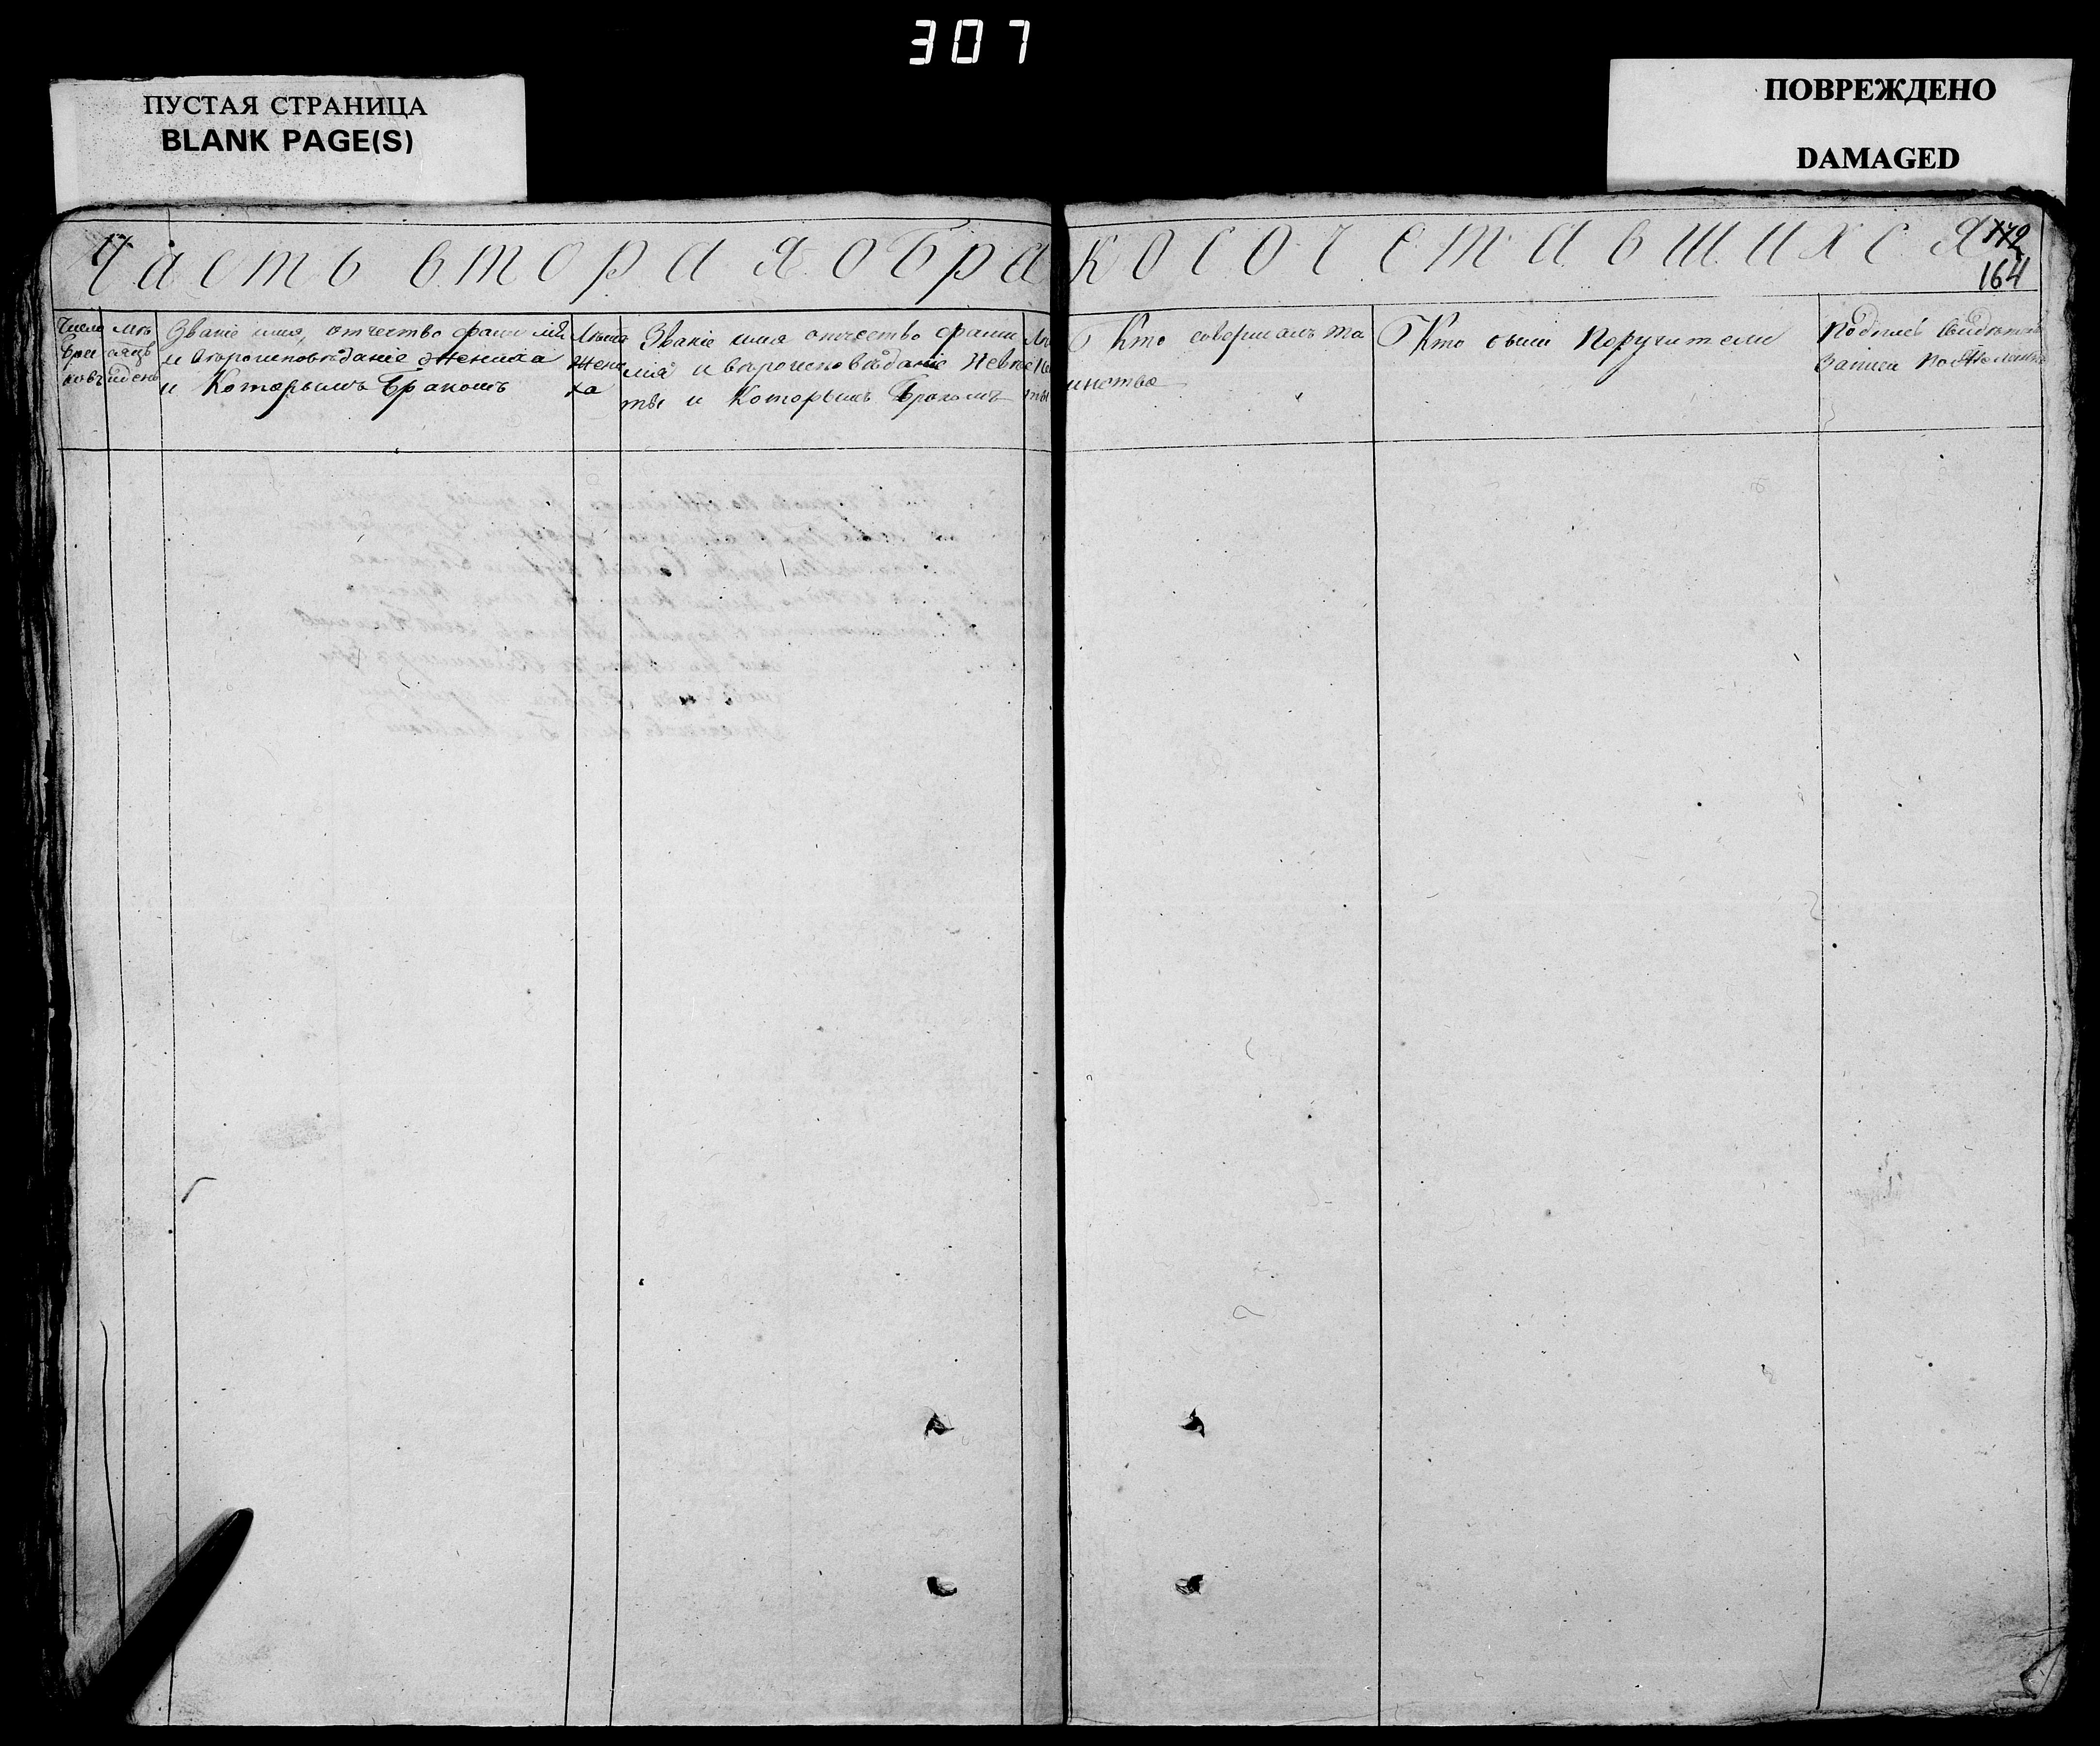 307
ПУСТАЯ СТРАНИЦА
BLANK PAGE(S)
ПОВРЕЖДЕНО
DAMAGED
Часть вторая о бракосочетавшихся
164
Число браковъ
мѣсяцъ и день
Званіе имя, отчество фамилія
и вѣроисповѣданіе жениха
и Которымъ Бракомъ
Лѣта
жени
ха
Званіе имя отчество фами
лія и вѣроисповѣданіе Невѣс
ты и Которымъ Бракомъ
Кто совершалъ та
инство
Кто были Поручители
Подпись свидѣтелей
Записи по желанію